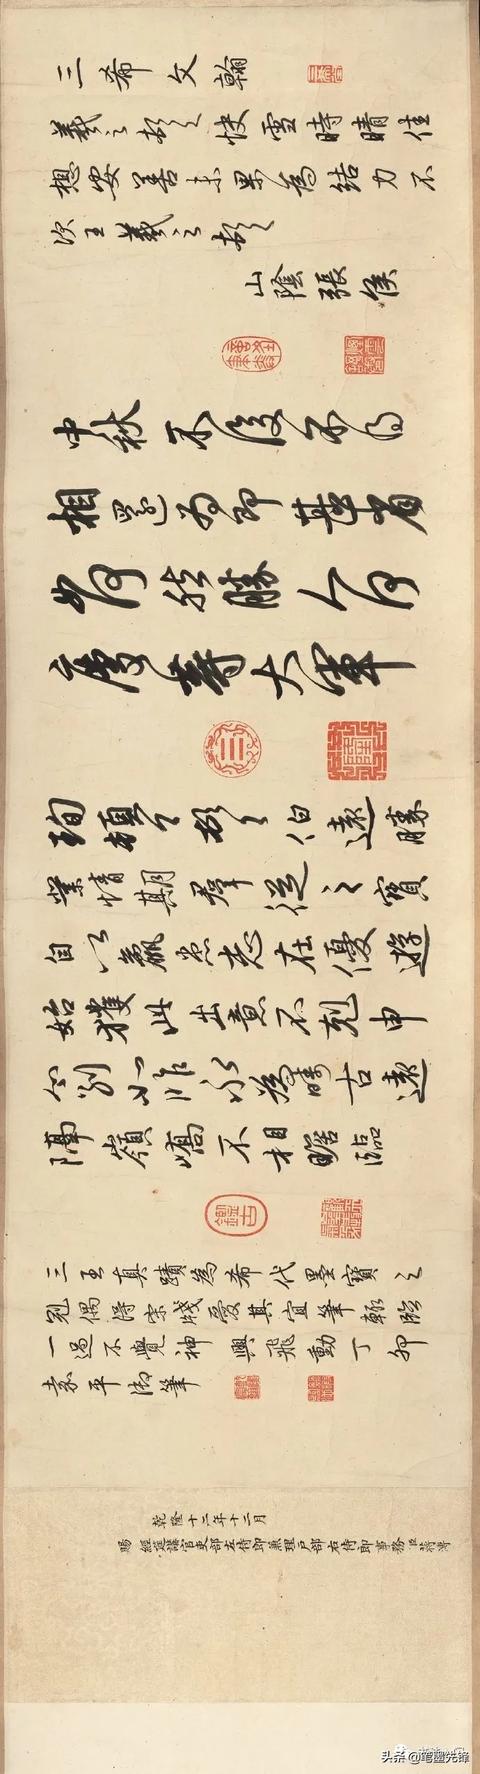 三希文翰
羲之頓首快雪時晴佳
想安善未果為結力不
次王羲之頓首
山陰張侯
中秋不復不得
相還為即甚省
如何然勝人何
慶等大軍
珣頓首頓首伯遠勝
業情期群從之寶
自以羸患志在優遊
始獲此出意不剋申
分別如昨永為疇古遠
隔嶺嶠不相瞻臨
三王真蹟為希代墨寶之
冠偶得宋牋愛其宜筆輒臨
一過不覺神興飛動丁卯
嘉平御筆
乾隆十二年十二月
賜經筵講官吏部左侍郎兼理戶部右侍郎事務臣蔣溥
头条 @笔墨先锋